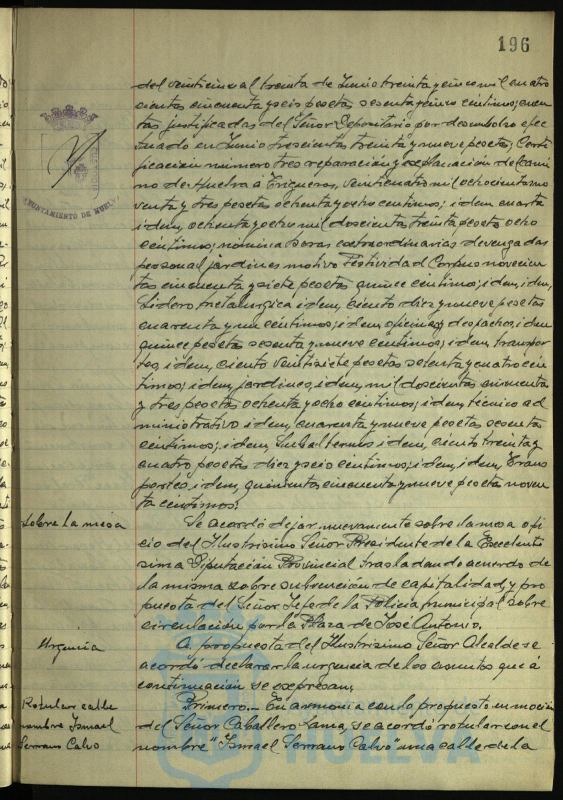 196
del veinticinco al treinta de Junio treinta y cinco mil cuatro
cientas cincuenta y seis pesetas sesenta y cinco céntimos; cuen
tas justificadas del Señor Depositario por desembolso efec
tuado en Junio trescientas treinta y nueve pesetas; Certi
ficación número tres reparación y explanación de cami
no de Huelva á Trigueros, veinticuatro mil ochocientas no
venta y tres pesetas ochenta y ocho céntimos; idem cuarta
idem, ochenta y ocho mil doscientas treinta pesetas ocho
céntimos; nómina horas extraordinarias devengadas
personal jardines motivo Festividad Corpus novecien
tas cincuenta y siete pesetas quince céntimos; idem, idem,
Sidero metalurgica idem, ciento diez y nueve pesetas
cuarenta y un céntimos; idem oficinas y despachos, idem
quince pesetas sesenta y nueve céntimos; idem transpor
tes, idem, ciento veintisiete pesetas setenta y cuatro cén
timos; idem, jardines, idem, mil doscientas cincuenta
y tres pesetas ochenta y ocho céntimos; idem, técnico ad
ministrativo idem, cuarenta y nueve pesetas sesenta
céntimos; idem, Subalternos idem, ciento treinta y
cuatro pesetas diez y seis céntimos; idem, idem, Trans
portes, idem, quinientas cincuenta y nueve pesetas noven
ta céntimos.
AYUNTAMIENTO DE HUELVA
Sobre la mesa
Se acordó dejar nuevamente sobre la mesa ofi
cio del Ilustrisimo Señor Presidente de la Excelentí
sima Diputación Provincial trasladando acuerdo de
la misma sobre subvención de capitalidad, y pro
puesta del Señor Jefe de la Policia municipal sobre
circulación por la Plaza de José Antonio.
Urgencia
A propuesta del Ilustrisimo Señor Alcalde se
acordó declarar la urgencia de los asuntos que á
continuación se expresan;
Rotular calle
nombre Ismael
Serrano Calvo
Primero.- En armonia con lo propuesto en moción
del Señor Caballero Lama, se acordó rotular con el
nombre "Ismael Serrano Calvo" una calle de la
HUELVA